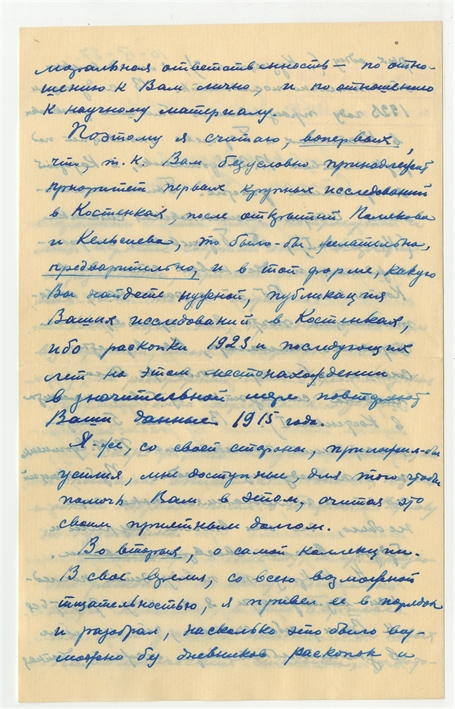 моральная ответственность — по отно-
шению к Вам лично и по отношению
к научному материалу.
Поэтому я считаю, вопервых,
что, т.к. Вам безусловно принадлежит
приоритет первых крупных исследований
в Костенках, после открытий Полякова
и Кельсиева, то было-бы желательно,
предварительно, и в той форме, какую
Вы найдете нужной, публикация
Ваших исследований в Костенках,
ибо раскопки 1923 и последующих
лет на этом местонахождении
в значительной мере повторяют
Ваши данные 1915 года.
Я-же, со своей стороны, приложил-бы
усилия, мне доступные, для того чтобы
помочь Вам в этом, считая это
своим приятным долгом.
Во вторых, о самой коллекции.
В свое время, со всею возможной
тщательностью, я привел ее в порядок
и разобрал, насколько это было воз-
можно без дневников раскопок и